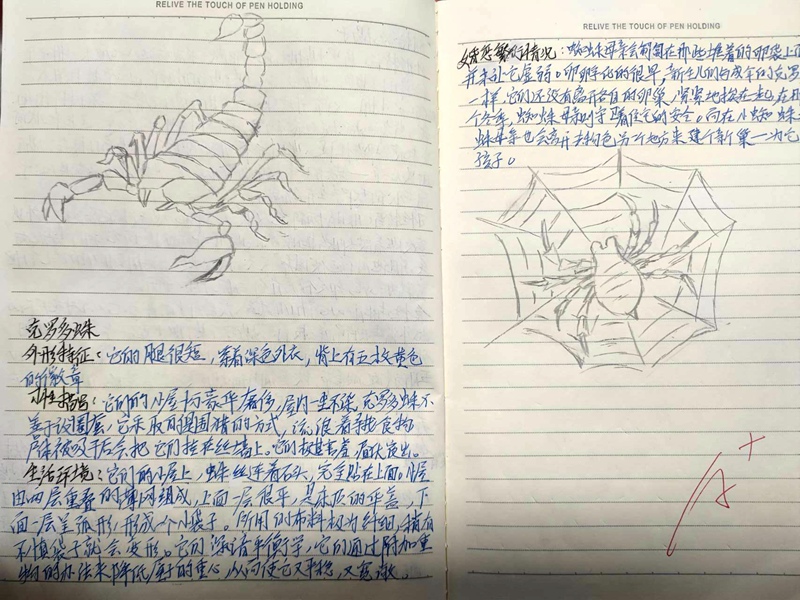 RELIVE THE TOUCH OF PEN HOLDING
克罗多蛛
外形特征：它们的腿很短，穿着深色外衣，背上有五枚黄色
的徽章
习性描写：它们的小屋均豪华奢侈，屋内一尘不染，克罗多蛛不
善于设圈套，它采取的是围猎的方式，流浪着寻找食物
尸体被吸干后会把它们挂在丝墙上。它们
生活环境：它们的小屋上，蜘蛛丝连着石头，完全贴在上面。小屋
由两层重叠的薄网组成，上面一层很平，是床顶的华盖，下
面一层呈弧形，形成一个小袋子。所用的布料极为纤细，稍有
不慎袋子就会变形。它们深谙平衡学，它们通过附加重
物的办法来降低屋子的重心，从而使它又平稳，又宽敞。
RELIVE THE TOUCH OF PEN HOLDING
繁衍情况：蜘蛛母亲会匍匐在那些堆着的卵袋上面
并未让它虚弱。卵孵化的很早，新生儿们与成年的克罗
一样，它们还没有离开各自的卵巢，紧紧地挨在一起，在那
个冬季，蜘蛛母亲则守着住它们的安全。而在小蜘蛛
蛛母亲也会离开去物色另一个地方来建个新巢
孩子。
A+